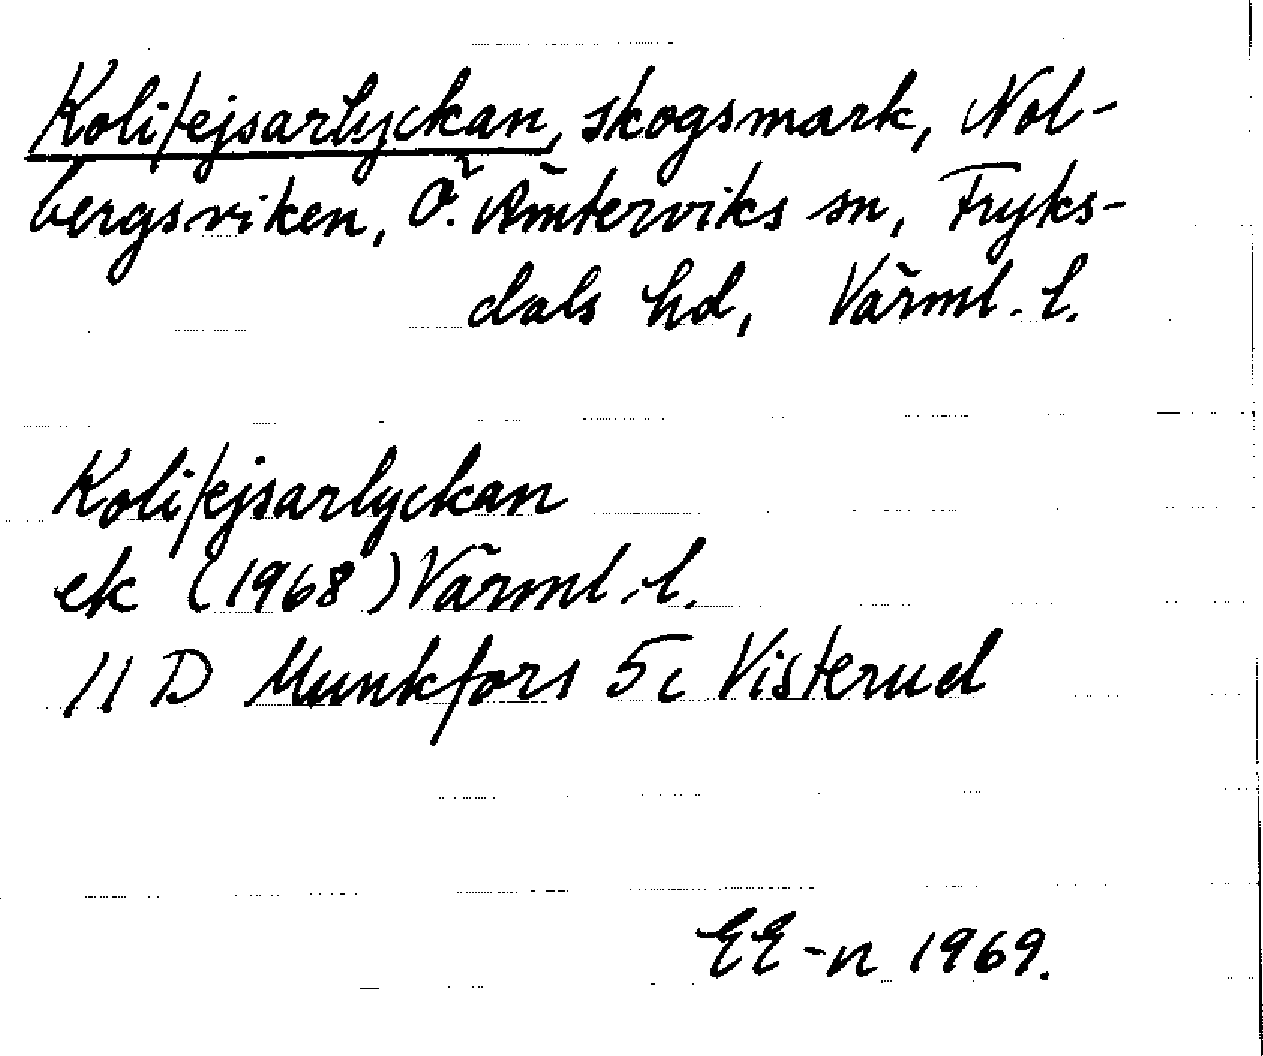 Kolifejsarlyckan, skogsmark, Nol-
bergsviken, Ö. Ämterviks sn, Fryks-
dals hd, Värml. l.
Kolifejsarlyckan
ek (1968) Värml. l.
11 D Munkfors 5c Visterud
EE-n 1969.